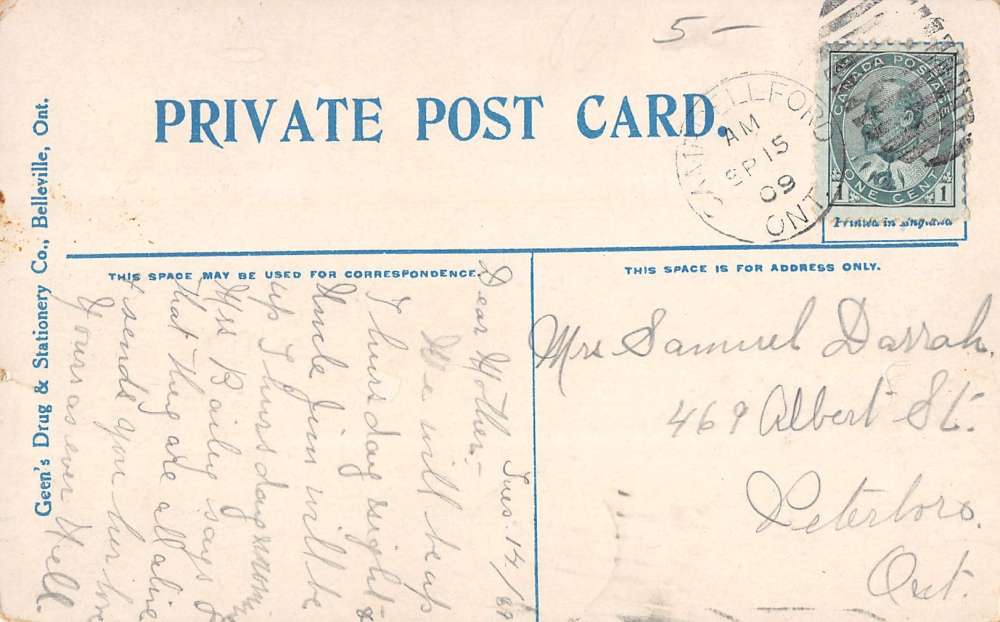 5-
PRIVATE POST CARD.
CAMPBELLFORD
AM
SP 15
09
ONT.
CANADA POSTAGE
ONE CENT
1 1
Printed in England
Geen's Drug & Stationery Co., Belleville, Ont.
THIS SPACE MAY BE USED FOR CORRESPONDENCE.
THIS SPACE IS FOR ADDRESS ONLY.
Tues. 14/09
Dear Mother:-
We will be up
Thursday night &
Uncle Jim will be
up Thursday
Mrs Bailey says
that they are all alive
& sends you her love
Yours as ever Nell.
Mrs Samuel Darrah.
469 Albert St.
Peterboro.
Ont.